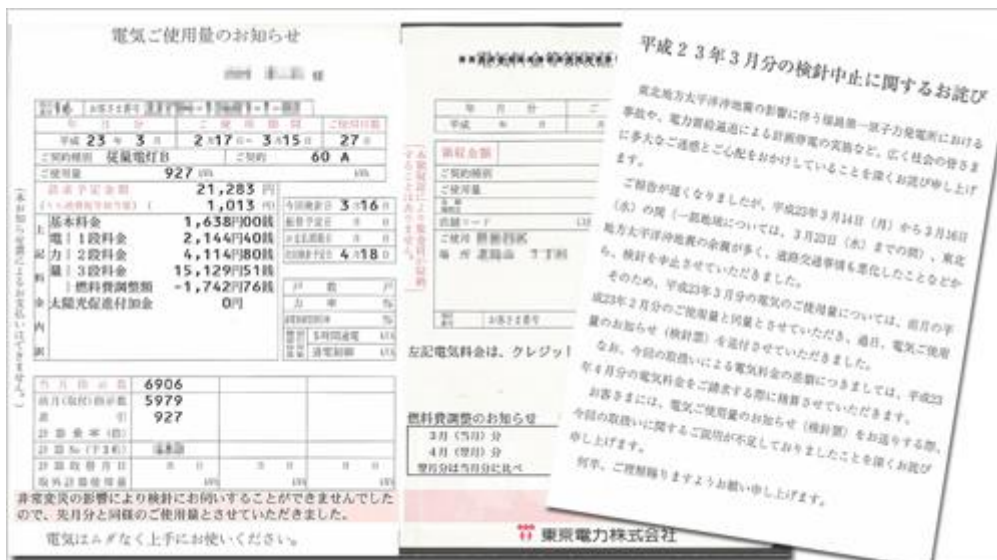 電気ご使用量のお知らせ
様
お客さま番号
年 月 分
ご使用期間
ご使用日数
平成 23 年 3 月
2月17日~ 3月15日
27日
ご契約種別 従量電灯B
ご契約 60 A
ご使用量 927 kWh
請求予定金額 21,283 円
1,013 円
今回検針日 3月16日
基本料金 1,638円00銭
振替予定日 月 日
電 1段料金 2,144円40銭
力 2段料金 4,114円80銭
4月18日
量 3段料金 15,129円51銭
燃料費調整額 -1,742円76銭
太陽光促進付加金 0円
上記料金内訳
(本お知らせ票によるお支払いはできません。)
当月指示数 6906
前月(取付)指示数 5979
差引 927
計器乗率(倍)
計器取替月日 月 日
取外計器使用量 kWh
非常変災の影響により検針にお伺いすることができませんでした
ので、先月分と同様のご使用量とさせていただきました。
電気はムダなく上手にお使いください。
年 月 分
平成 年 月
領収金額
ご契約種別
ご使用量
お客さま番号
左記電気料金は、クレジット
燃料費調整のお知らせ
3月(当月)分
4月(翌月)分
翌月分は当月分に比べ
東京電力株式会社
平成23年3月分の検針中止に関するお詫び
東北地方太平洋沖地震の影響に伴う福島第一原子力発電所における
事故や、電力需給逼迫による計画停電の実施など、広く社会の皆さま
に多大なご迷惑とご心配をおかけしていることを深くお詫び申し上げ
ます。
ご報告が遅くなりましたが、平成23年3月14日(月)から3月16日
(水)の間(一部地域については、3月23日(水)までの間)、東北
地方太平洋沖地震の余震が多く、道路交通事情も悪化したことなどか
ら、検針を中止させていただきました。
そのため、平成23年3月分の電気のご使用量については、前月の平
成23年2月分のご使用量と同量とさせていただき、過日、電気ご使用
量のお知らせ(検針票)を送付させていただきました。
なお、今回の取扱いによる電気料金の差額につきましては、平成23
年4月分の電気料金をご請求する際に精算させていただきます。
お客さまには、電気ご使用量のお知らせ(検針票)をお送りする際、
今回の取扱いに関するご説明が不足しておりましたことを深くお詫び
申し上げます。
何卒、ご理解賜りますようお願い申し上げます。